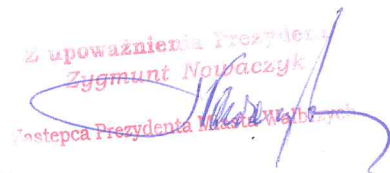 Z upoważnienia Prezydenta
Zygmunt Nowaczyk
Zastępca Prezydenta Miasta Wałbrzych